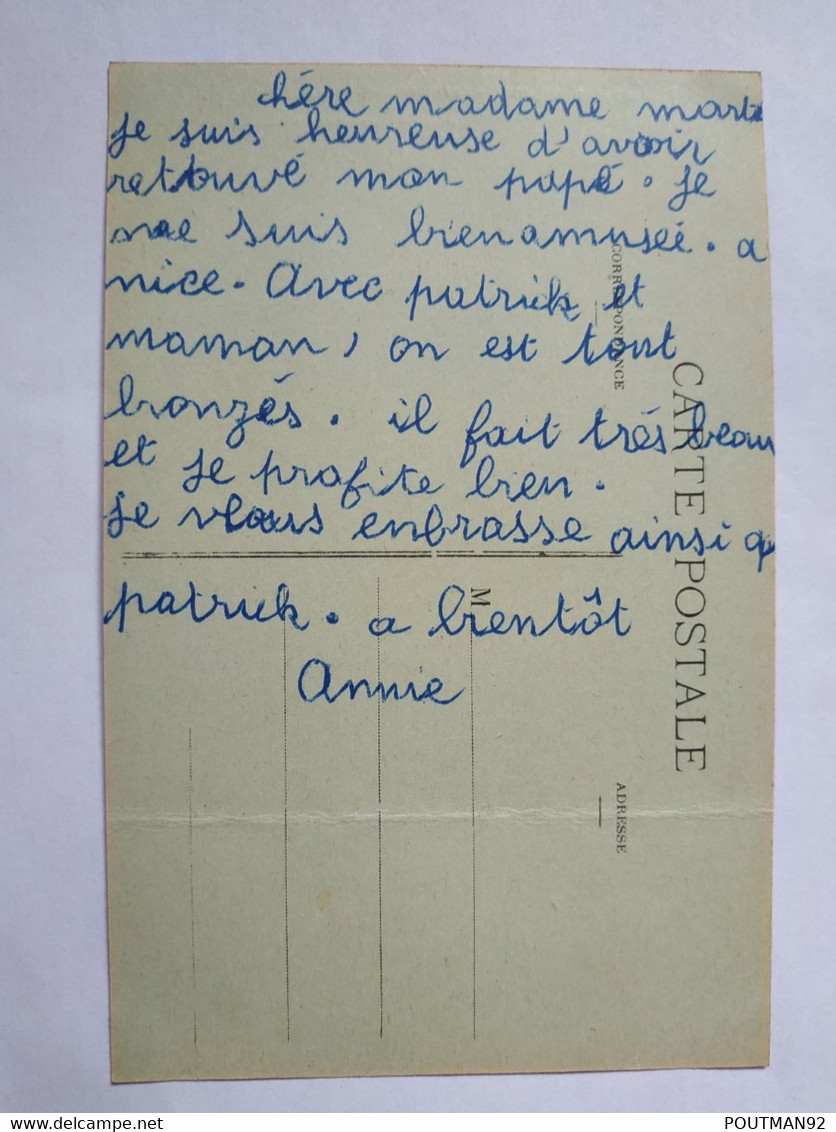 chére madame
Je suis heureuse d'avoir
retouvé mon papé. Je
me suis bienamuseé. a
nice. Avec patrick et
maman, on est tout
bronzés. il fait trés beau
et je profite bien.
Je vous enbrasse ainsi q
patrick. a bientôt
Annie
CARTE POSTALE
CORRESPONDANCE
ADRESSE
M
www.delcampe.net
POUTMAN92